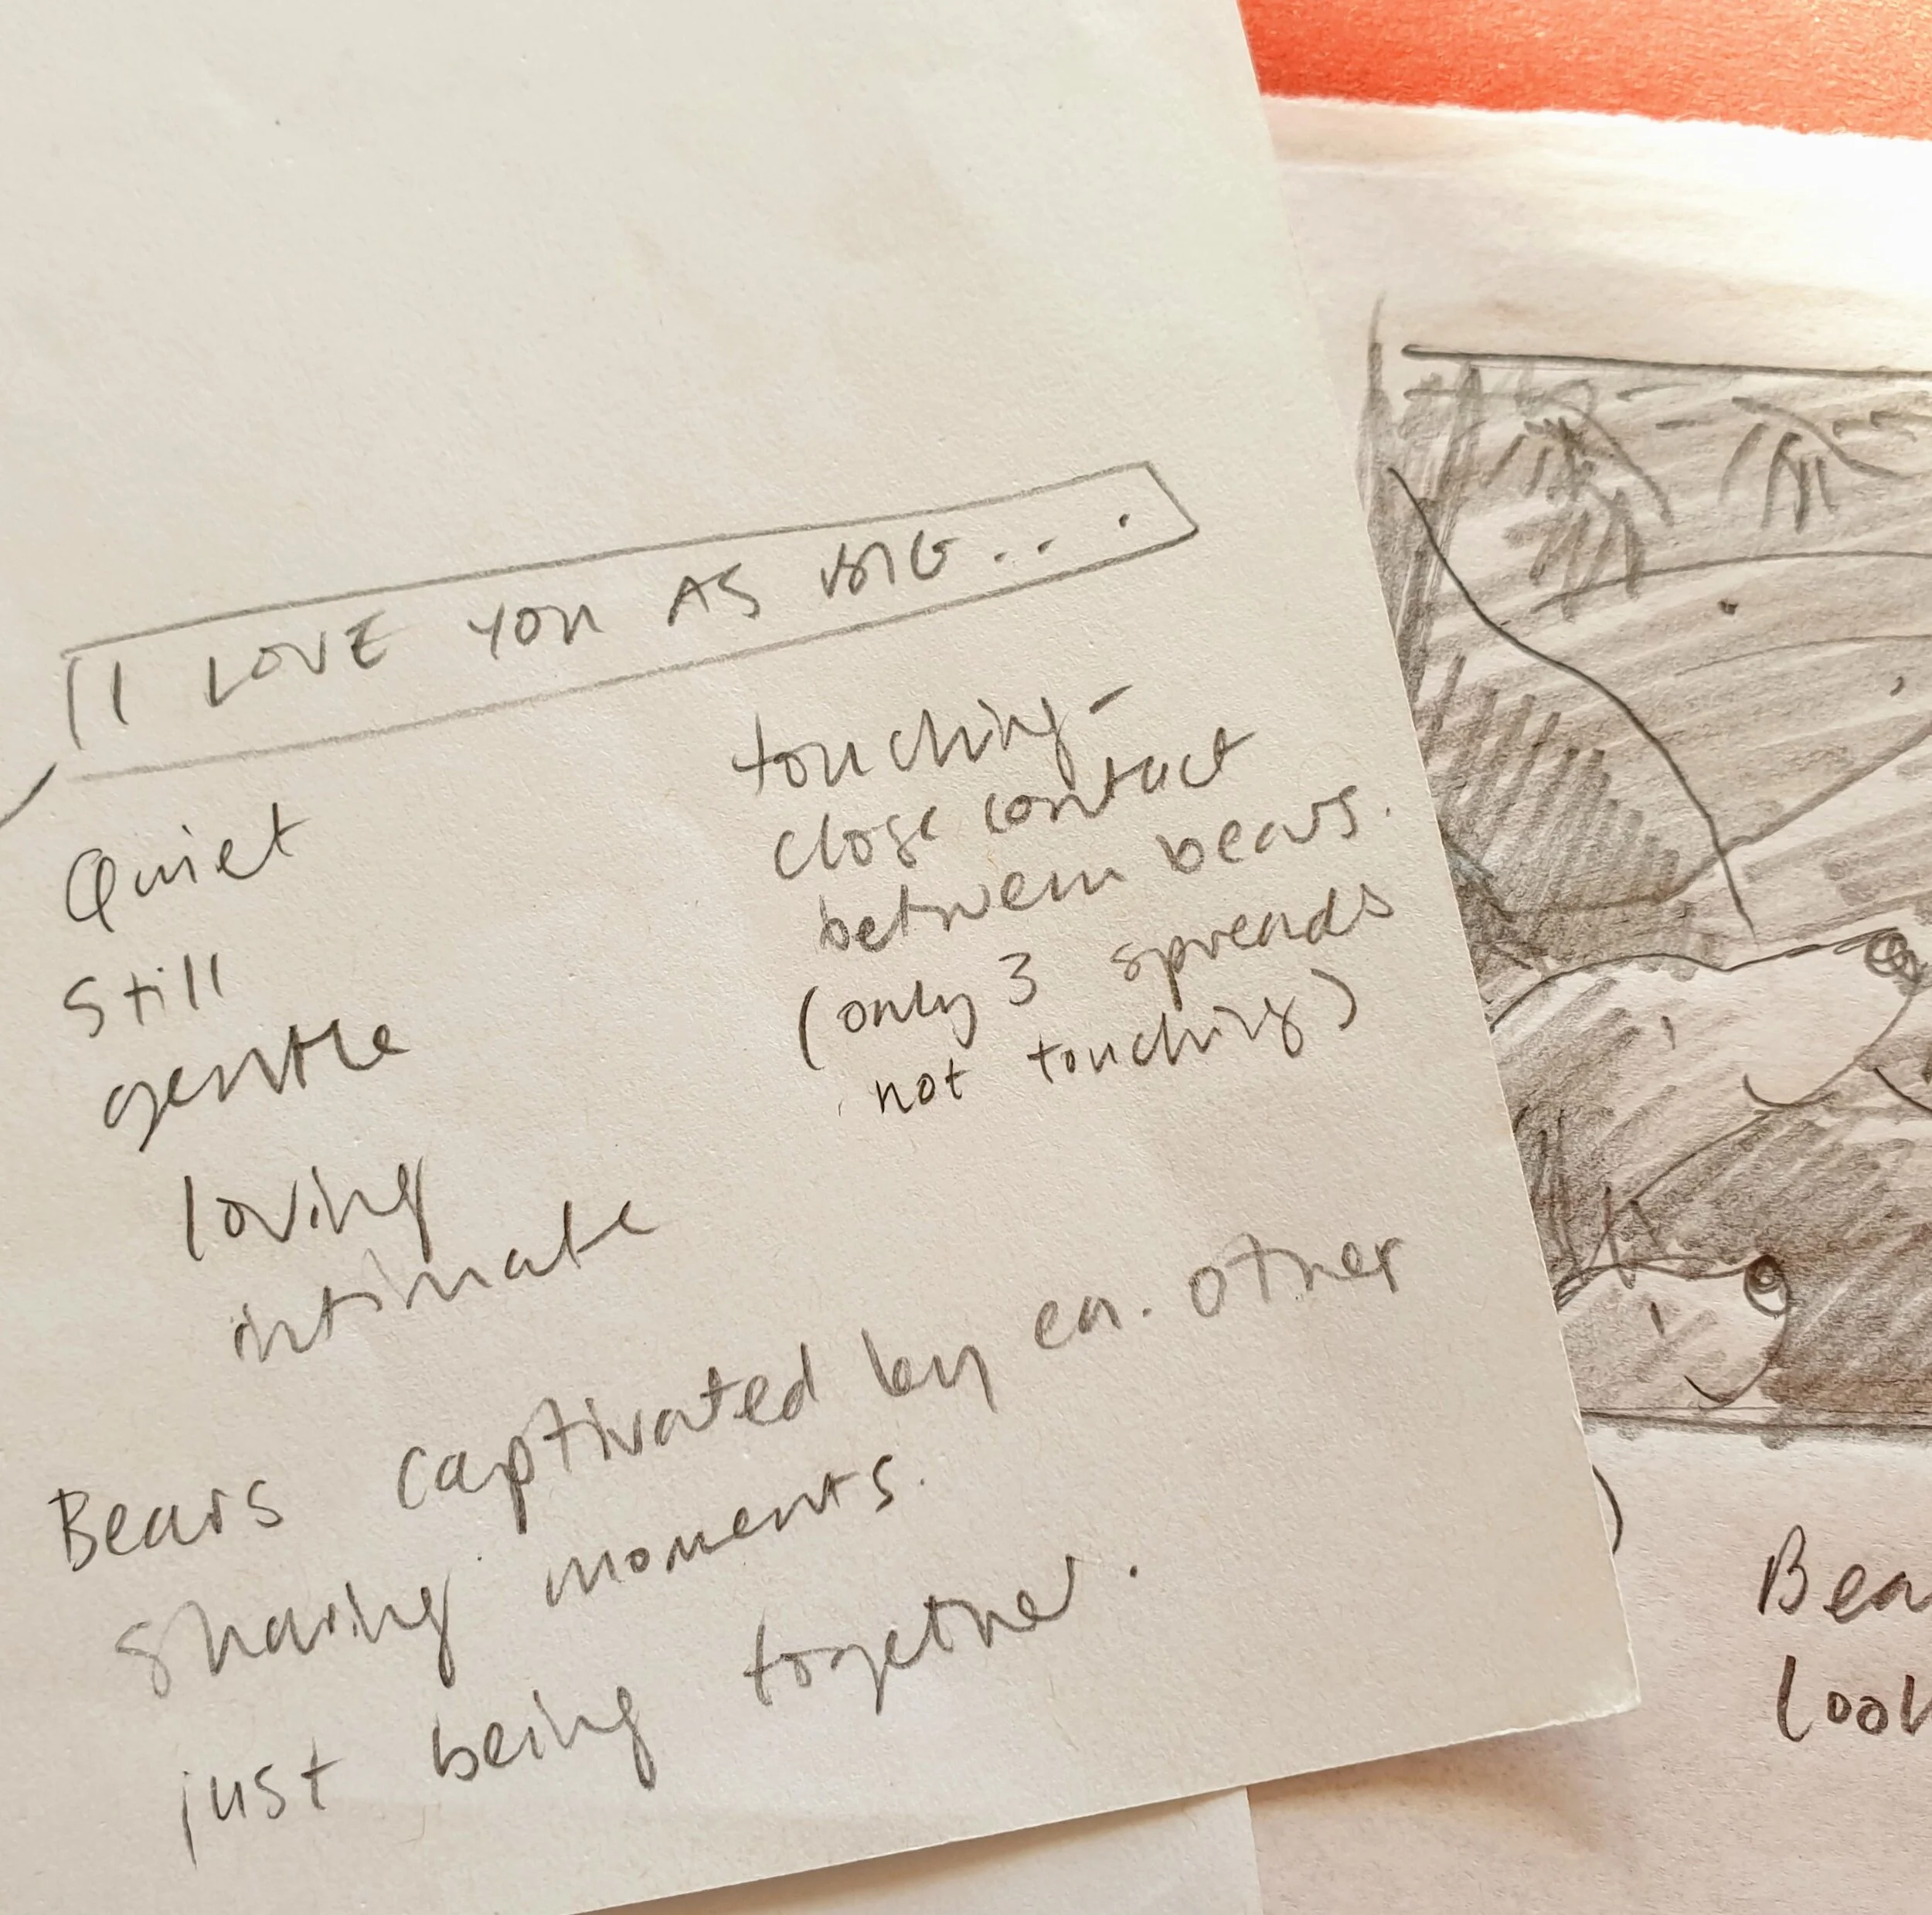 I LOVE YOU AS BIG...
Quiet
Still
gentle
loving
intimate
touching-
close contact
between bears.
(only 3 spreads
not touching)
Bears captivated by ea. other
sharing moments.
just being together.
)
Bea
look